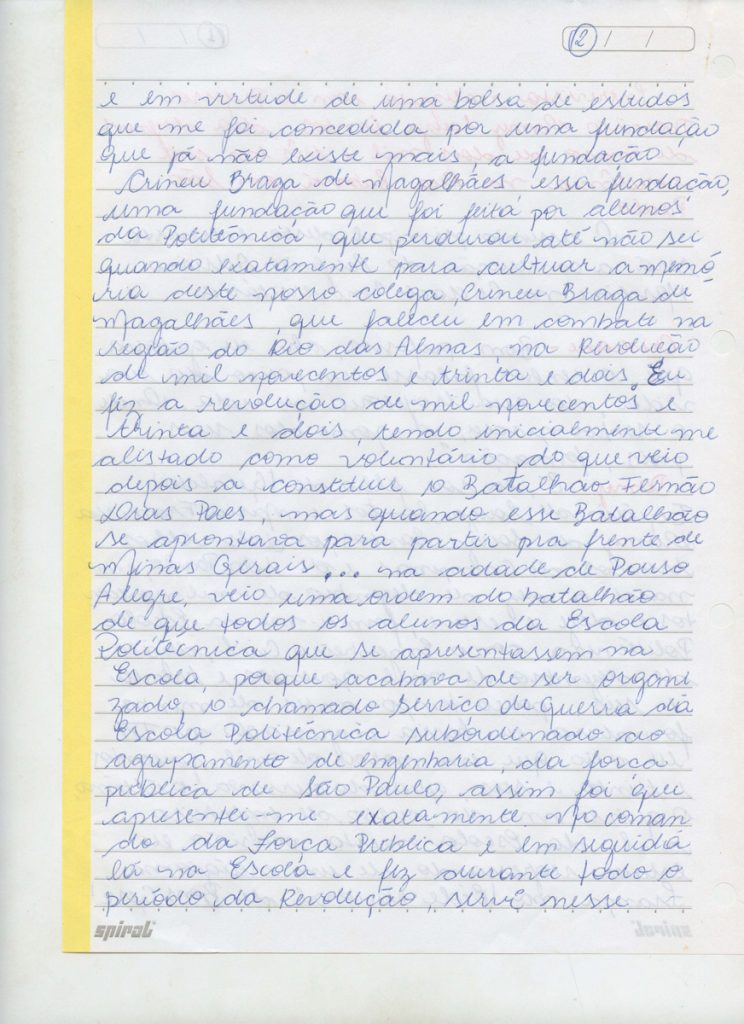 2
e em virtude de uma bolsa de estudos
que me foi concedida por uma fundação
que já não existe mais, a fundação
Crineu Braga de Magalhães, essa fundação,
uma fundação que foi feita por alunos
da Politécnica, que perdurou até não sei
quando exatamente para cultuar a memó
ria deste nosso colega, Crineu Braga de
Magalhães, que faleceu em combate na
região do Rio das Almas, na Revolução
de mil novecentos e trinta e dois. Eu
fiz a revolução de mil novecentos e
trinta e dois, tendo inicialmente me
alistado como voluntário, do que veio
depois a constituir o Batalhão Fernão
Dias Paes, mas quando esse Batalhão
se aprontava para partir pra frente de
Minas Gerais... na cidade de Pouso
Alegre, veio uma ordem do batalhão
de que todos os alunos da Escola
Politécnica que se apresentassem na
Escola, porque acabava de ser organi
zado, o chamado Serviço de Guerra da
Escola Politécnica subordinado ao
agrupamento de engenharia, da força
pública de São Paulo, assim foi que
apresentei-me exatamente no coman
do da Força Pública e em seguida
lá na Escola e fiz durante todo o
período da Revolução, servi nesse
spiral